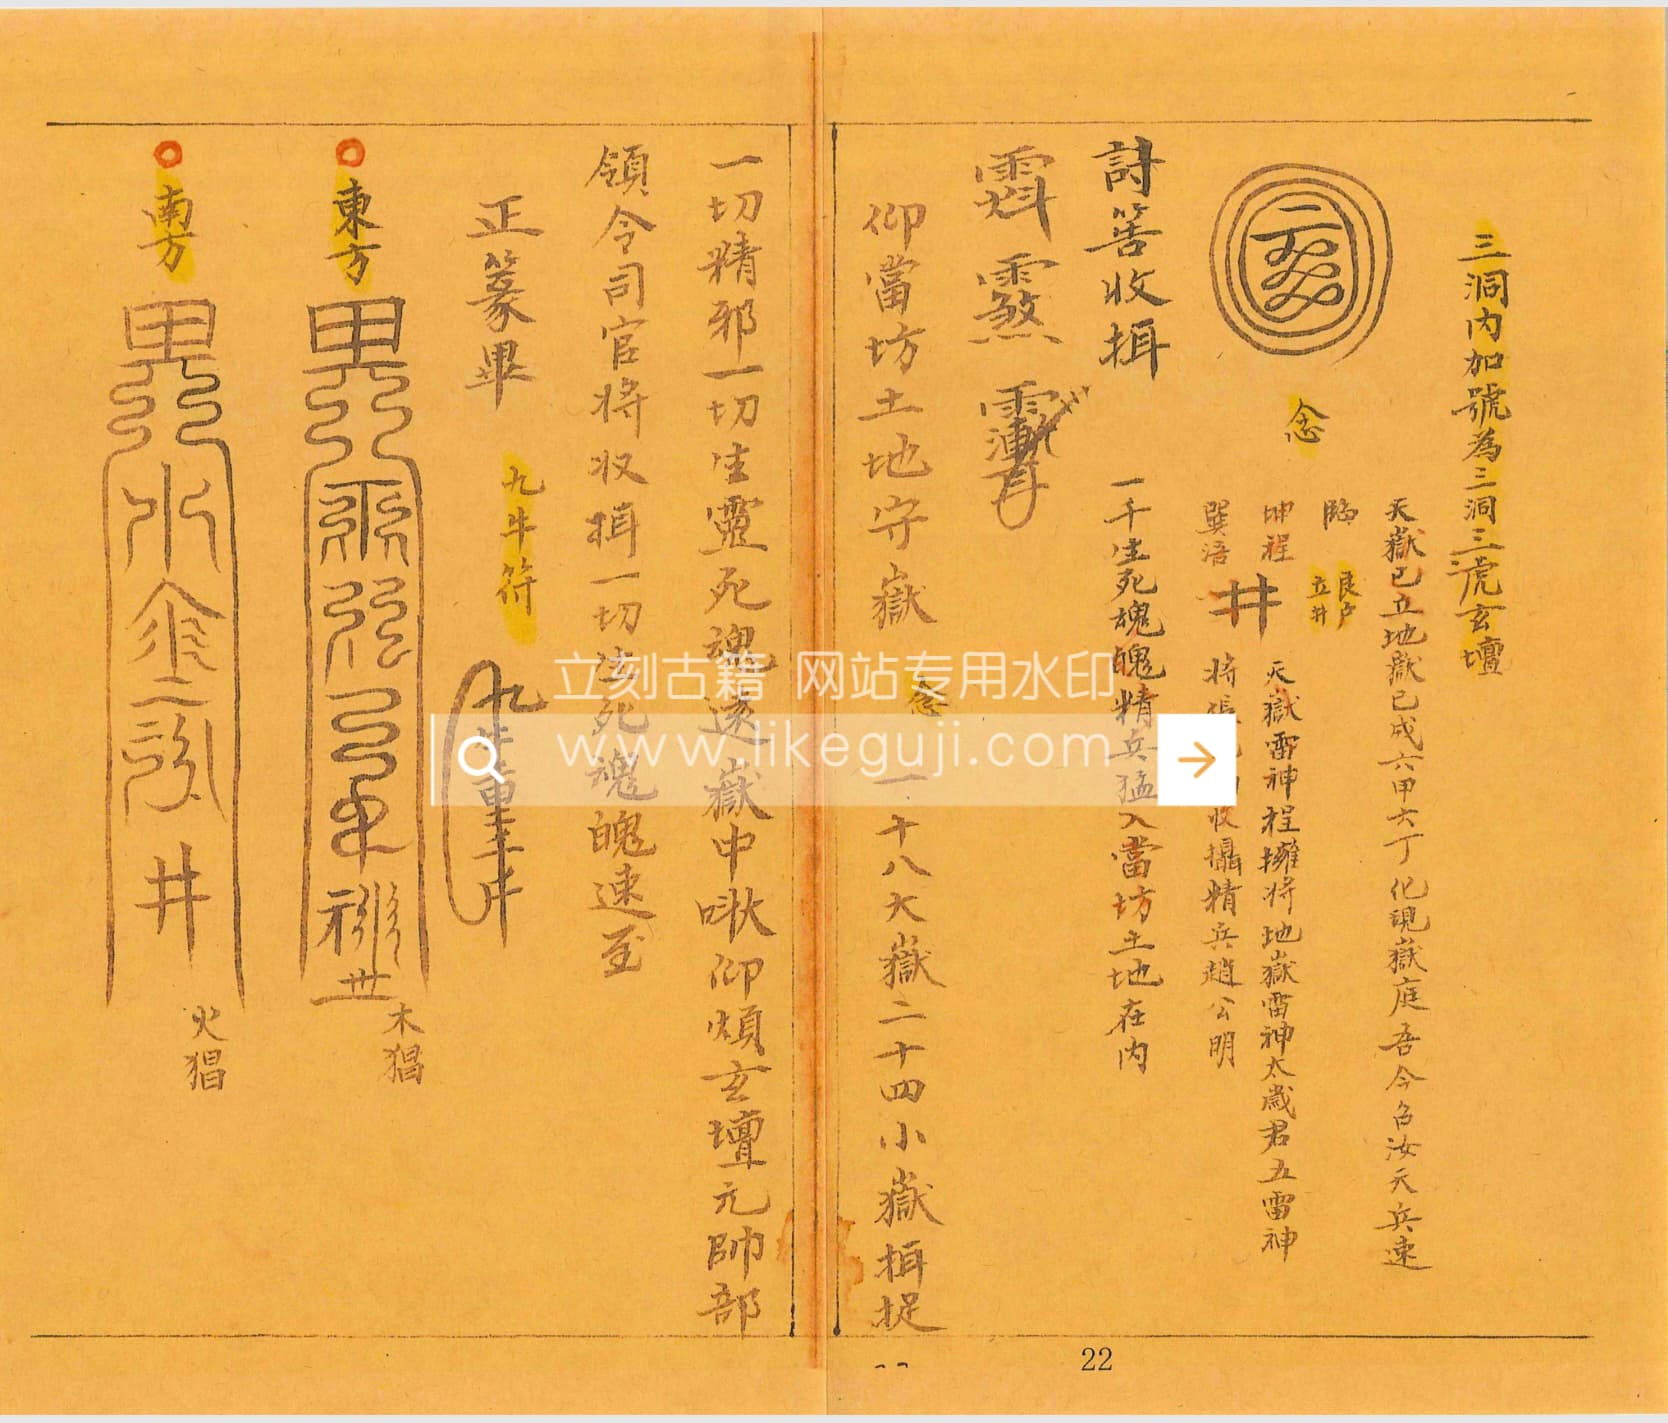 三洞内加號為三洞三虎玄壇
念
天嶽已立地嶽已成六甲六丁化現嶽庭吾今召汝天兵速
臨
艮户
立井
坤程
井
天嶽雷神程擁將地嶽雷神太歲君五雷神
巽浯
將張
收攝精兵趙公明
收揖
一千生死魂魄精兵猛入當坊土地在内
仰當坊土地守嶽
念
一十八大嶽二十四小嶽揖捉
一切精邪一切生靈死魂速逐嶽中啾仰煩玄壇元帥部
領令司官将收揖一切法死魂魄速至
正篆畢
九牛符
東方
木猖
南方
水
井
火猖
22
立刻古籍 网站专用水印
www.likeguji.com